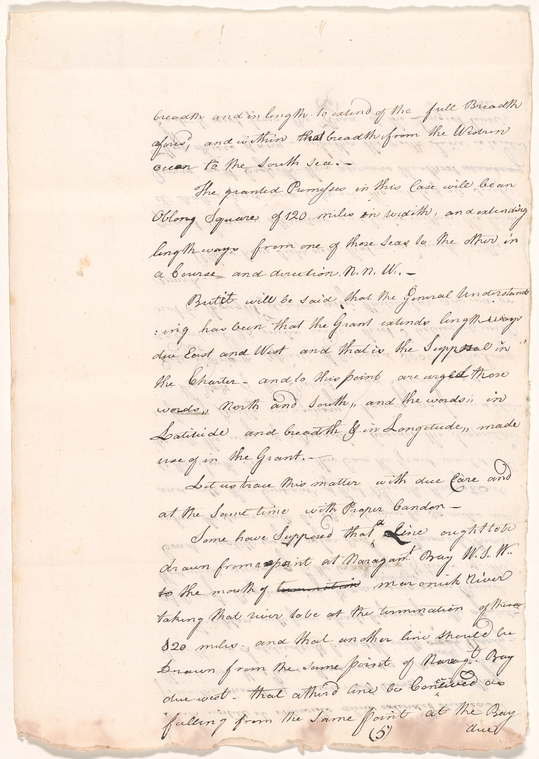 breadth and in length to extend of the full Breadth
afores,d and within that breadth from the Western
ocean to the South Sea. —
The granted Premyses in this Case will be an
Oblong Square of 120 miles in width, and extending
length ways from one of those Seas to the other in
a Course and direction N. N. W. —
But it will be said that the General Understand
:ing has been that the Grant extends length ways
due East and West and that is the Supposal in
the Charter — and to this point are urged those
words,, North and South,, and the words,, in
Latitude and breadth & in Longitude,, made
use of in the Grant. —
Let us trace this matter with due Care and
at the Same time with Proper Candor —
Some have Supposed that a Line ought to be
drawn from a point at Naragant Bay W. S. W.
to the mouth of River
taking that river to be at the termination of
120 miles and that another line should be
Drawn from the Same point of Naragt. Bay
due west. that a third line be as
falling from the Same Point at the Bay
(5)